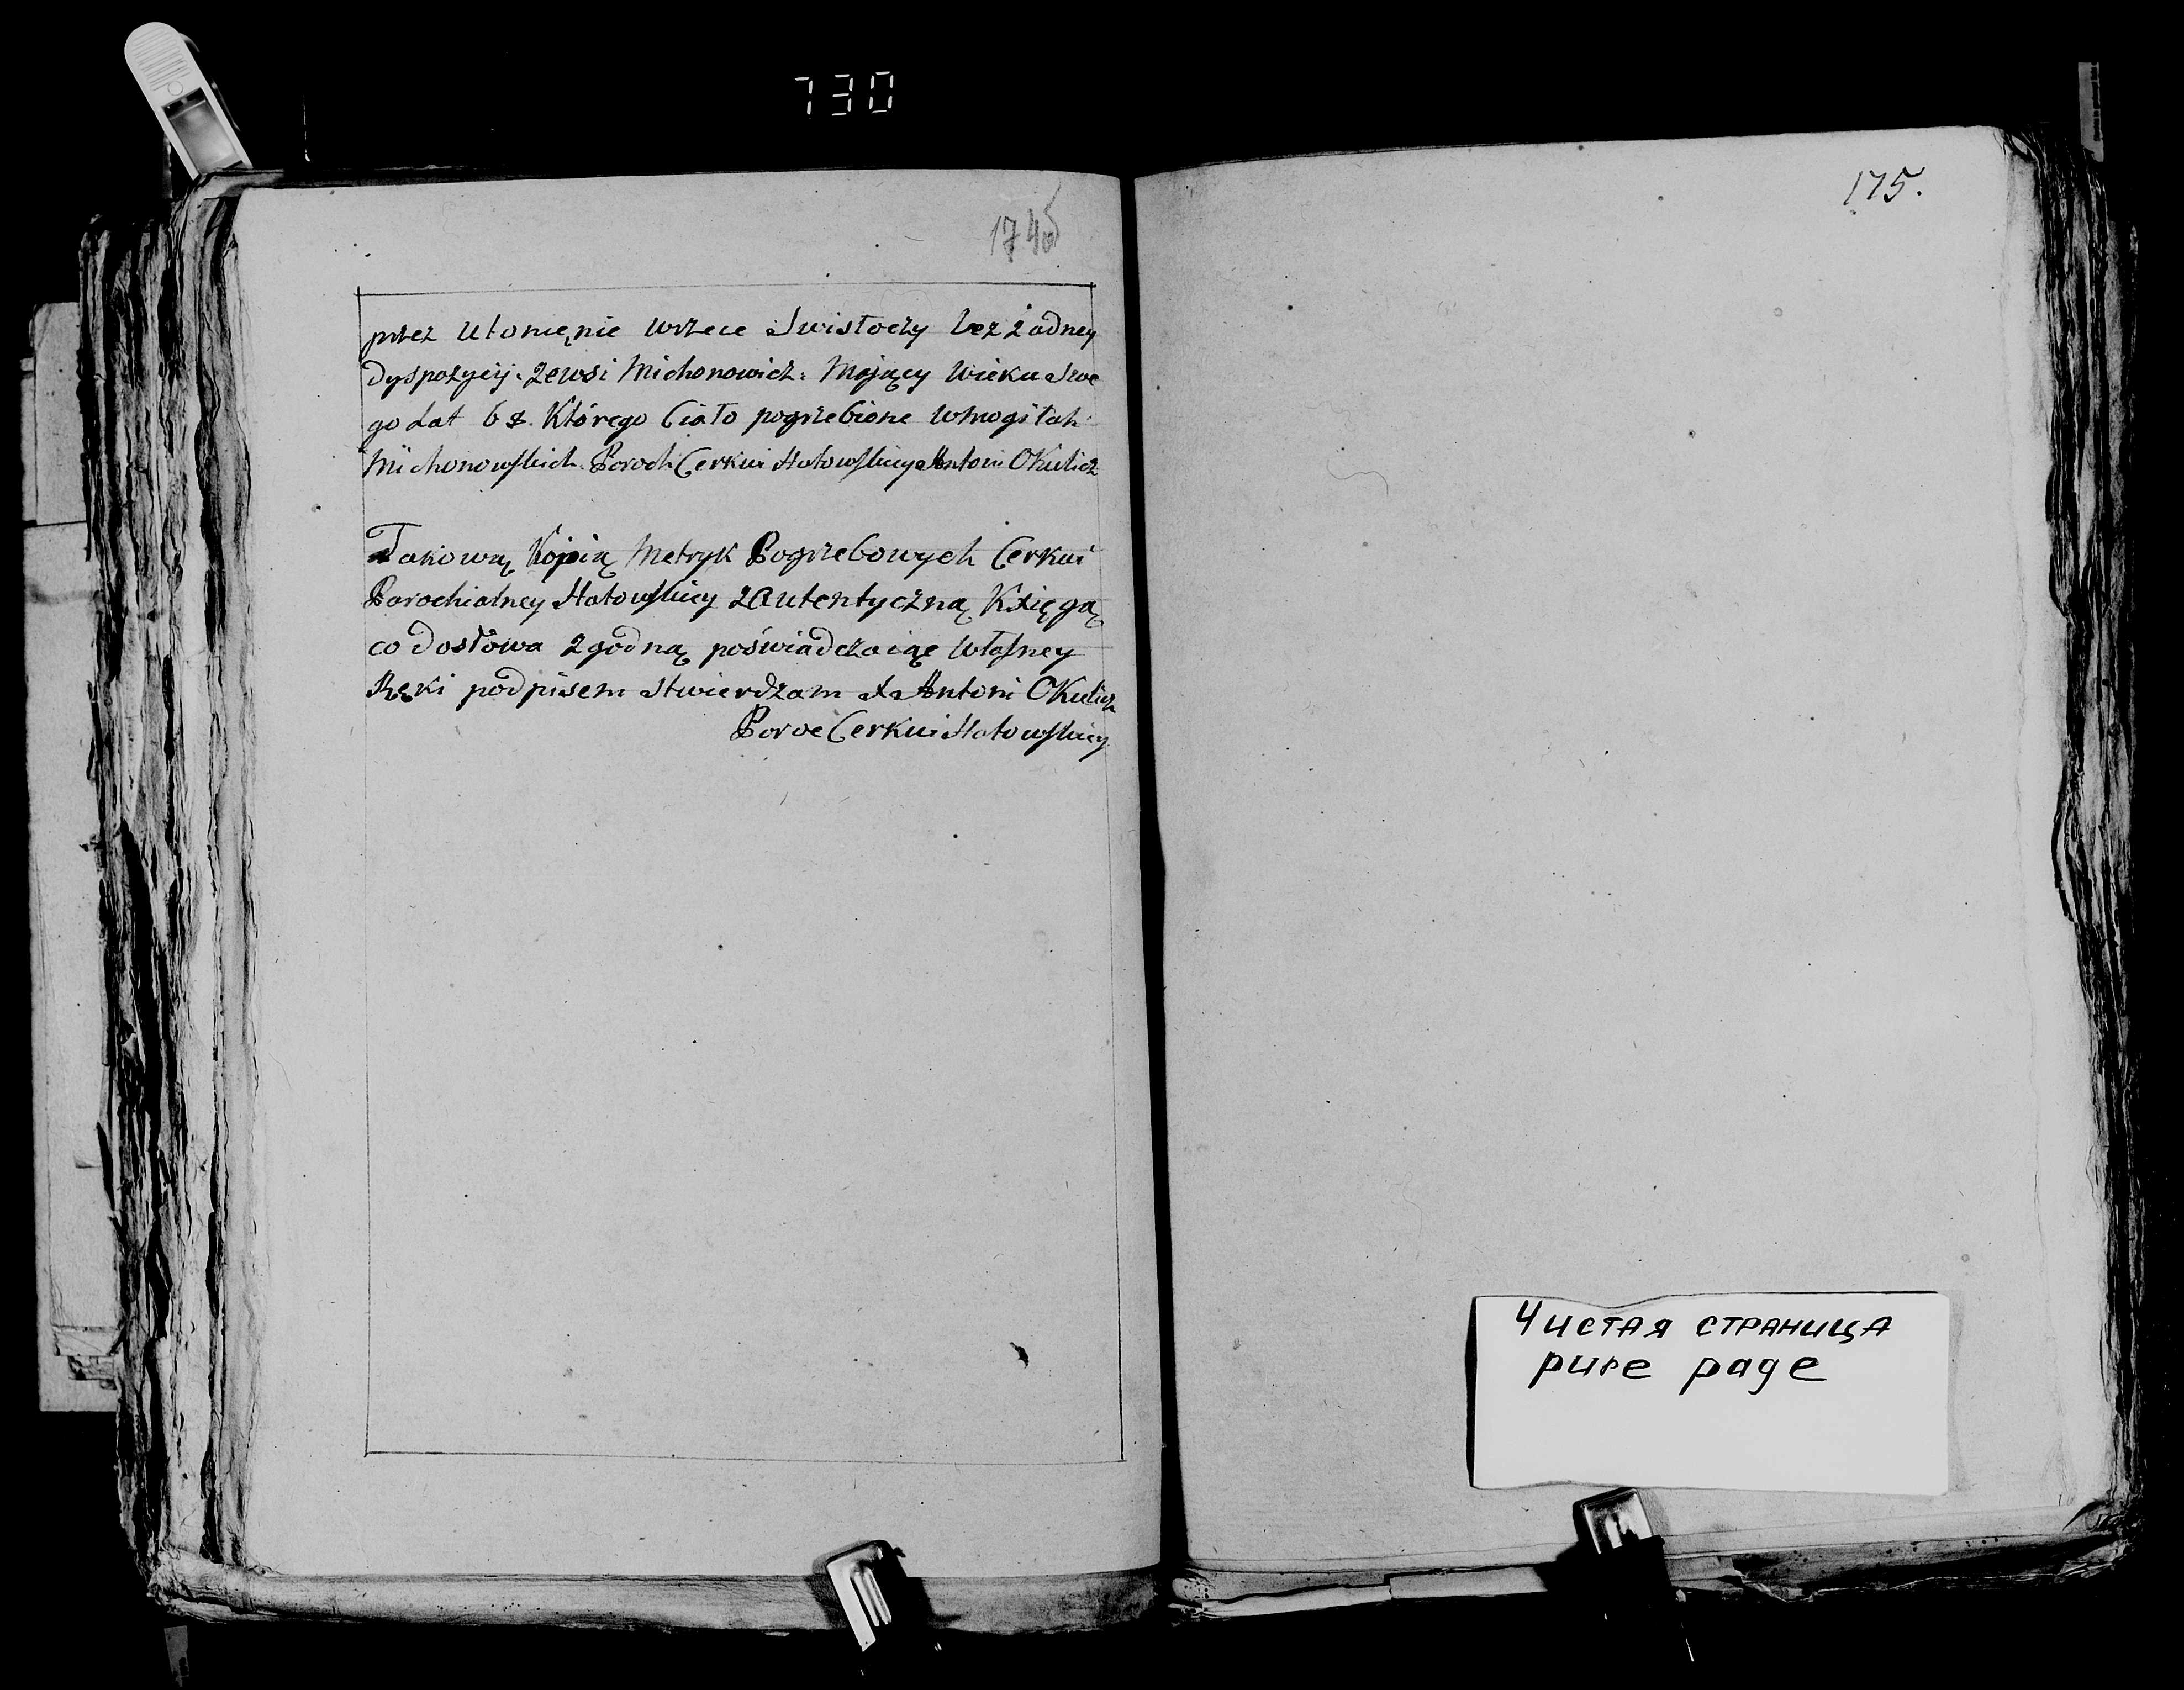 730
174об
przez Utonięnie wrzece Swistoczy bez żadney
dyspozycij. zewsi Michonowicz. Mający Wieku Swe
go Lat 68. Którego Ciało pogrzebione wmogiłah
Michonowskich. Paroch Cerkwi Hatowskiey Antoni Okulicz
Takową Kopią Metryk Pogrzebowych Cerkwi
Parochialney Hatowskiey zautentyczną Xięgą
co dosłowa zgodną poświadczaiąc własney
Ręki podpisem stwierdzam X Antoni Okulicz
Paroc Cerkwi Hatowskiey
175.
Чистая страница
pure page